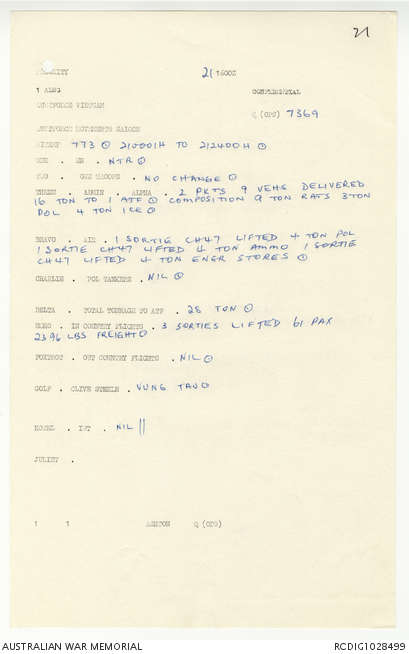 21
PRIORITY 21 1600Z
1 ALSG CONFIDENTIAL
AUSFORCE VIETNAM
Q (OPS) 7369
SITREP 773 ⊙ 210001H TO 212400H ⊙
ONE . EN . NTR ⊙
TWO . OWN TROOPS . NO CHANGE ⊙
THREE . ADMIN . ALPHA . 2 PKTS 9 VEHS DELIVERED
16 TON TO 1 ATF ⊙ COMPOSITION 9 TON RATS 3 TON
POL 4 TON ICE ⊙
BRAVO . AIR . 1 SORTIE CH47 LIFTED 4 TON POL
1 SORTIE CH47 LIFTED 4 TON AMMO 1 SORTIE
CH47 LIFTED 4 TON ENGR STORES ⊙
CHARLIE . POL TANKERS . NIL ⊙
DELTA . TOTAL TONNAGE TO ATF . 28 TON ⊙
ECHO . IN COUNTRY FLIGHTS . 3 SORTIES LIFTED 61 PAX
2396 LBS FREIGHT ⊙
FOXTROT . OUT COUNTRY FLIGHTS . NIL ⊙
GOLF . CLIVE STEELE . VUNG TAU ⊙
HOTEL . . NIL //
JULIET .
1 1 ASHTON Q (OPS)
AUSTRALIAN WAR MEMORIAL RCDIG1028499